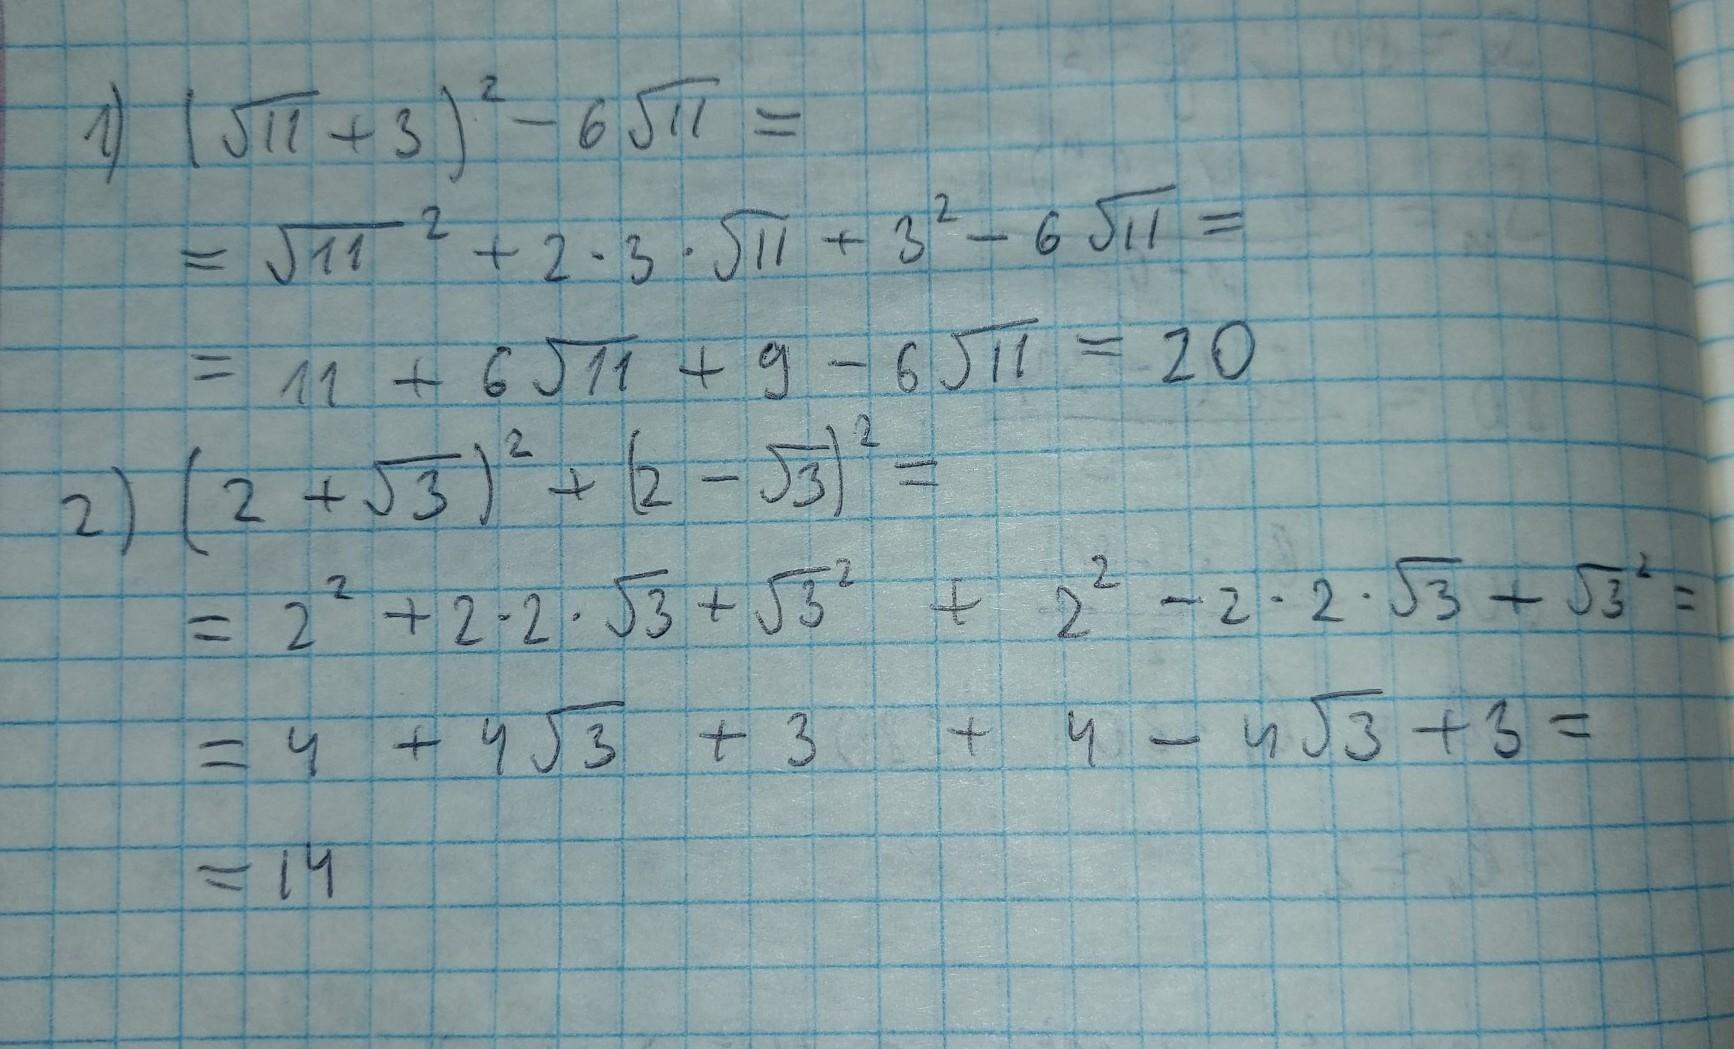 1) (√11 + 3)² - 6√11 =
= √11² + 2·3·√11 + 3² - 6√11 =
= 11 + 6√11 + 9 - 6√11 = 20
2) (2 + √3)² + (2 - √3)² =
= 2² + 2·2·√3 + √3² + 2² - 2·2·√3 + √3² =
= 4 + 4√3 + 3 + 4 - 4√3 + 3 =
= 14